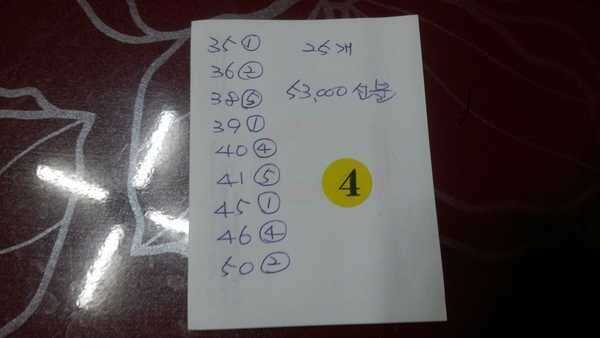 35 ①
36 ②
38 ⑤
39 ①
40 ④
41 ⑤
45 ①
46 ④
50 ②
25개
53,000 선불
4